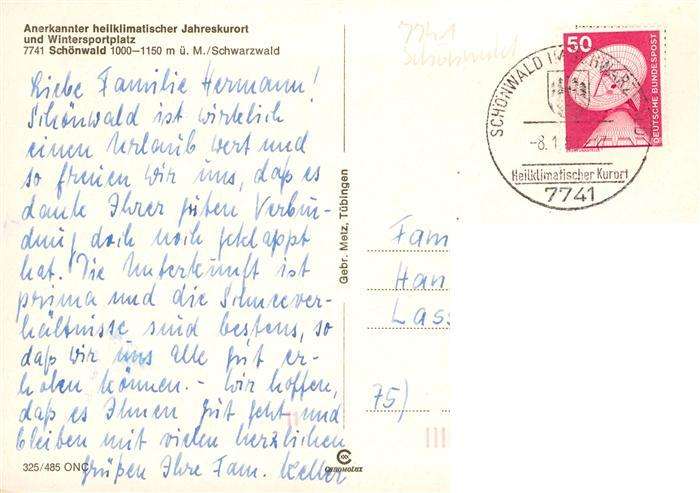 Anerkannter heilklimatischer Jahreskurort
und Wintersportplatz
7741 Schönwald 1000–1150 m ü. M./Schwarzwald
Liebe Familie Hermann!
Schönwald ist wirklich
einen Urlaub wert und
so freuen wir uns, daß es
dank Ihrer guten Verbin-
dung doch noch geklappt
hat. Die Unterkunft ist
prima und die Schneever-
hältnisse sind bestens, so
daß wir uns alle gut er-
holen können. - Wir hoffen,
daß es Ihnen gut geht und
bleiben mit vielen herzlichen
Grüßen Ihre Fam. Keller
325/485 ONC
Gebr. Metz, Tübingen
CHROMOLUX
7741
50
DEUTSCHE BUNDESPOST
SCHÖNWALD IM SCHWARZ
-8.1
Heilklimatischer Kurort
7741
Fam
Han
Lass
75)